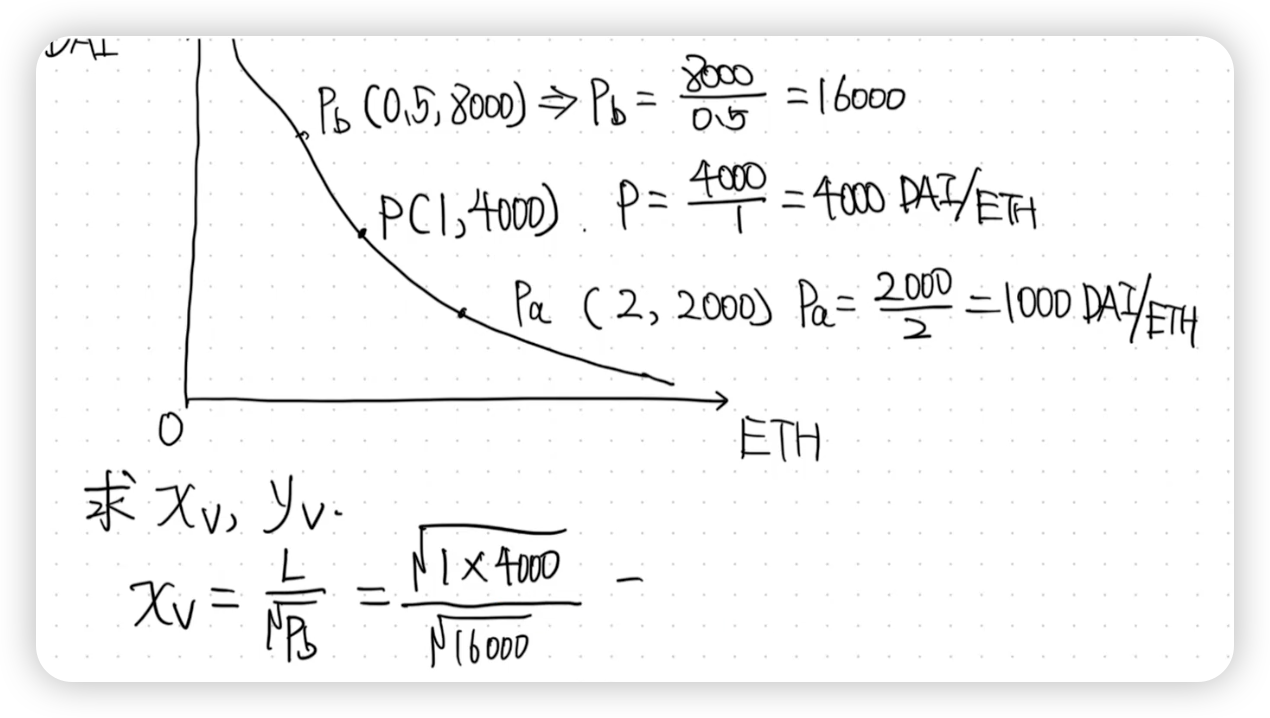 DAI
Pb (0.5, 8000) ⇒ Pb = 8000/0.5 = 16000
P(1, 4000). P = 4000/1 = 4000 DAI/ETH
Pa (2, 2000) Pa = 2000/2 = 1000 DAI/ETH
O
ETH
求 xv, yv.
xv = L/√Pb = √1×4000/√16000 –